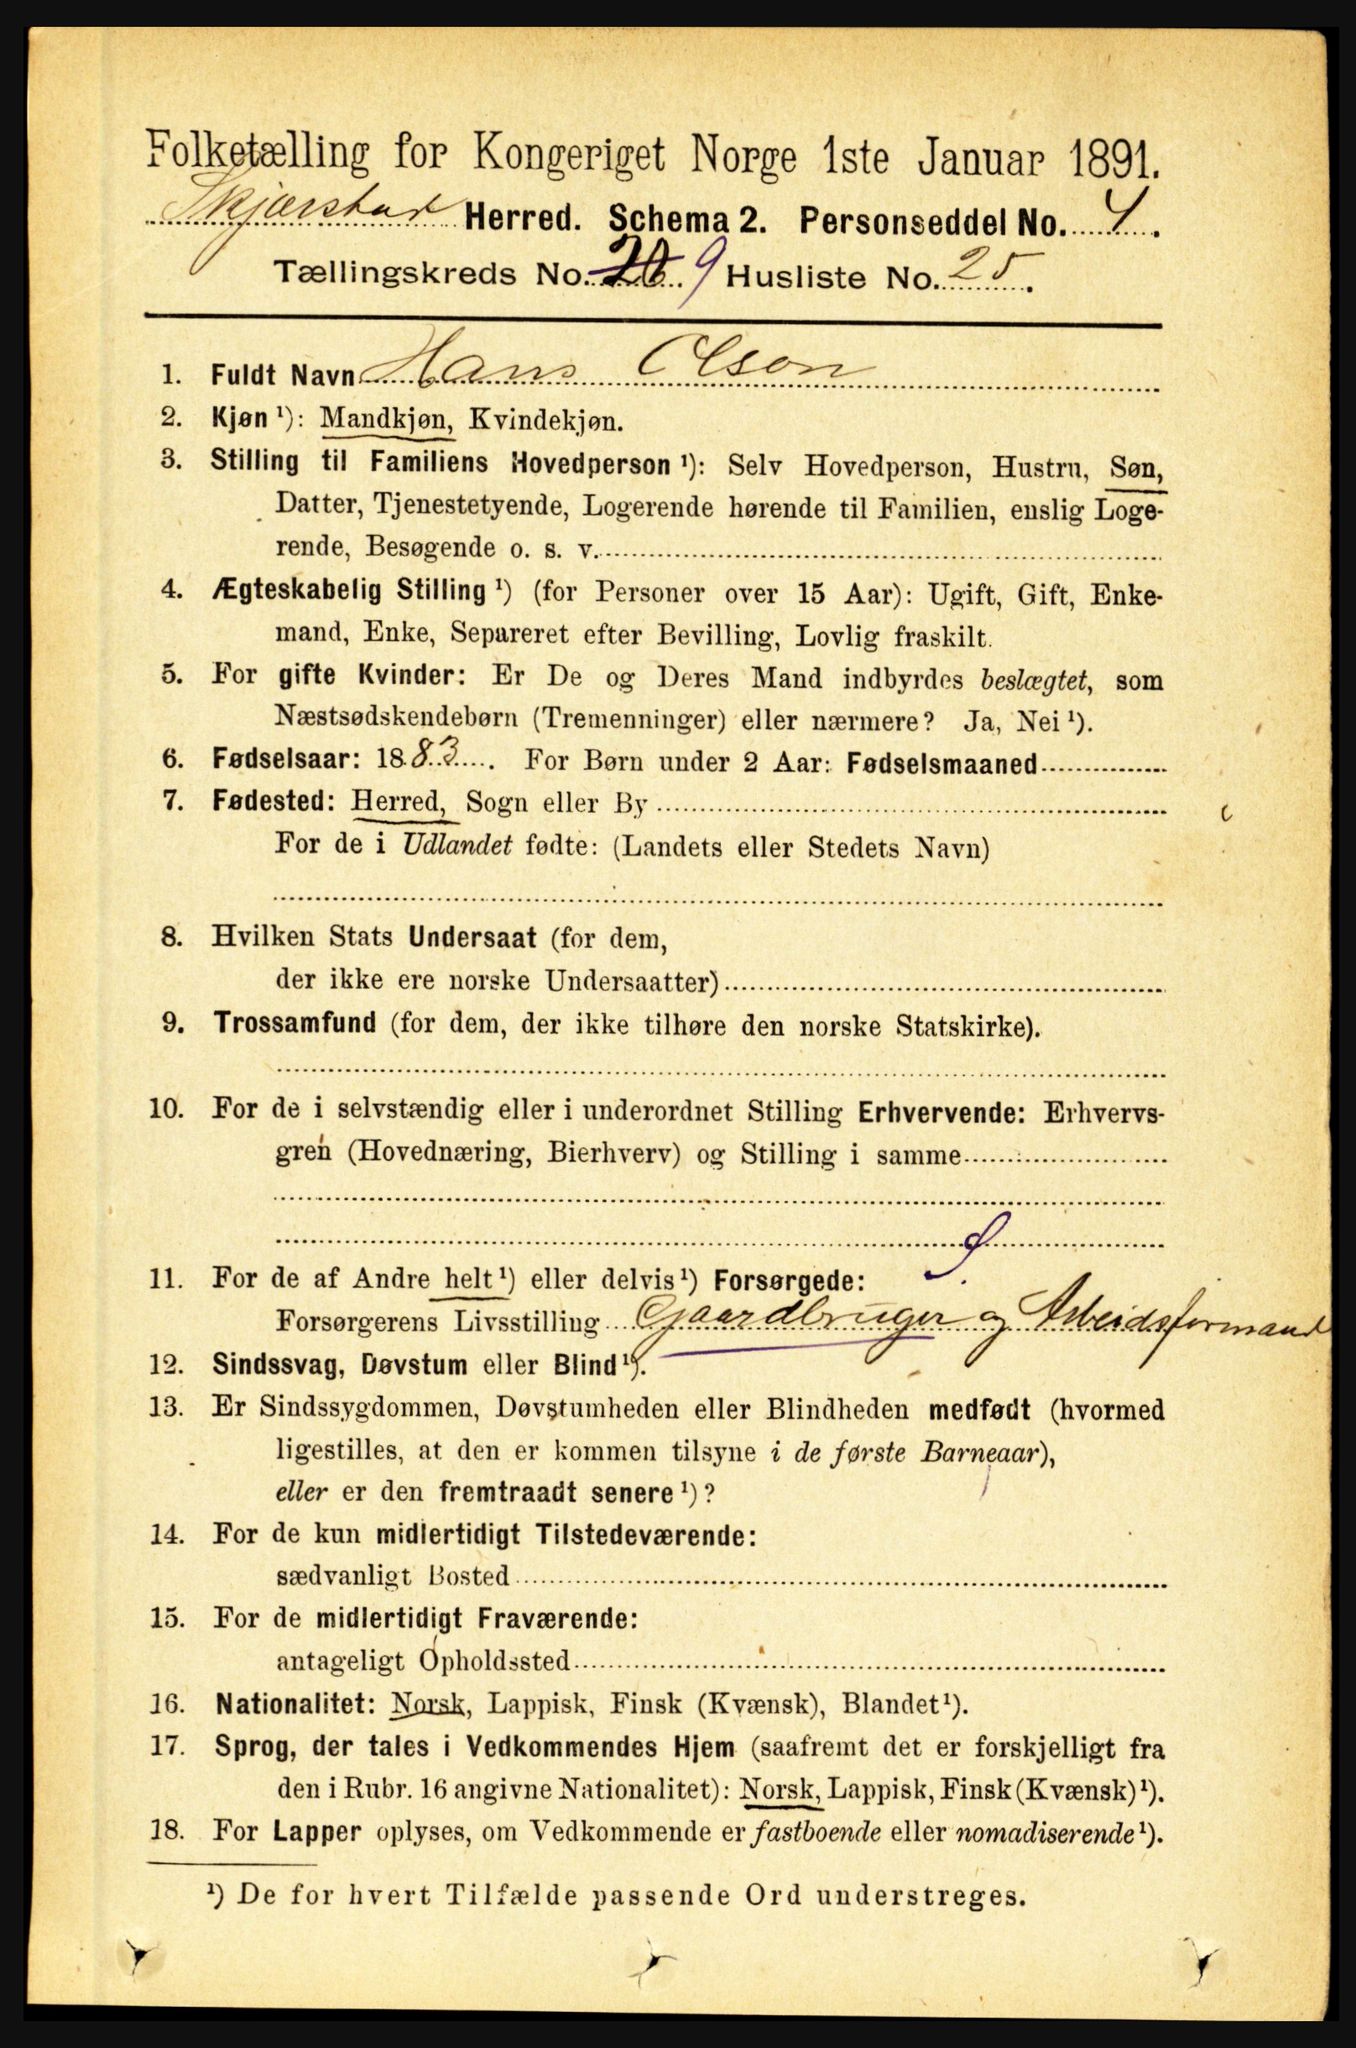 Folketælling for Kongeriget Norge 1ste Januar 1891.
Skjærstad Herred. Schema 2. Personseddel No. 4.
Tællingskreds No. 20 9 Husliste No. 25.
1. Fuldt Navn Hans Olson
2. Kjøn ¹): Mandkjøn, Kvindekjøn.
3. Stilling til Familiens Hovedperson ¹): Selv Hovedperson, Hustru, Søn,
Datter, Tjenestetyende, Logerende hørende til Familien, enslig Loge-
rende, Besøgende o. s. v.
4. Ægteskabelig Stilling ¹) (for Personer over 15 Aar): Ugift, Gift, Enke-
mand, Enke, Separeret efter Bevilling, Lovlig fraskilt.
5. For gifte Kvinder: Er De og Deres Mand indbyrdes beslægtet, som
Næstsødskendebørn (Tremenninger) eller nærmere? Ja, Nei ¹).
6. Fødselsaar: 1883. For Børn under 2 Aar: Fødselsmaaned
7. Fødested: Herred, Sogn eller By
For de i Udlandet fødte: (Landets eller Stedets Navn)
8. Hvilken Stats Undersaat (for dem,
der ikke ere norske Undersaatter)
9. Trossamfund (for dem, der ikke tilhøre den norske Statskirke).
10. For de i selvstændig eller i underordnet Stilling Erhvervende: Erhvervs-
gren (Hovednæring, Bierhverv) og Stilling i samme
11. For de af Andre helt ¹) eller delvis ¹) Forsørgede:
Forsørgerens Livsstilling Gaardbruger og Arbeidsformand
12. Sindssvag, Døvstum eller Blind ¹).
13. Er Sindssygdommen, Døvstumheden eller Blindheden medfødt (hvormed
ligestilles, at den er kommen tilsyne i de første Barneaar),
eller er den fremtraadt senere ¹)?
14. For de kun midlertidigt Tilstedeværende:
sædvanligt Bosted
15. For de midlertidigt Fraværende:
antageligt Opholdssted
16. Nationalitet: Norsk, Lappisk, Finsk (Kvænsk), Blandet ¹).
17. Sprog, der tales i Vedkommendes Hjem (saafremt det er forskjelligt fra
den i Rubr. 16 angivne Nationalitet): Norsk, Lappisk, Finsk (Kvænsk) ¹).
18. For Lapper oplyses, om Vedkommende er fastboende eller nomadiserende ¹).
¹) De for hvert Tilfælde passende Ord understreges.